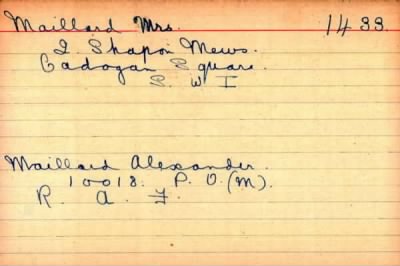 Maillard Mrs. 1433.
2. Shapon Mews.
Cadogan Square.
S. W I
Maillard Alexander.
10018. P. O. (M).
R. A. F.